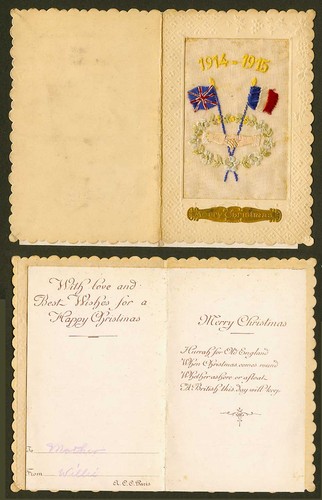 1914-1915
Merry Christmas
With love and
Best Wishes for a
Happy Christmas
To Mother
From Willie
A.C.C. Paris
Merry Christmas
Hurrah for Old England
When Christmas comes round
Whether ashore or afloat
All British this day will keep